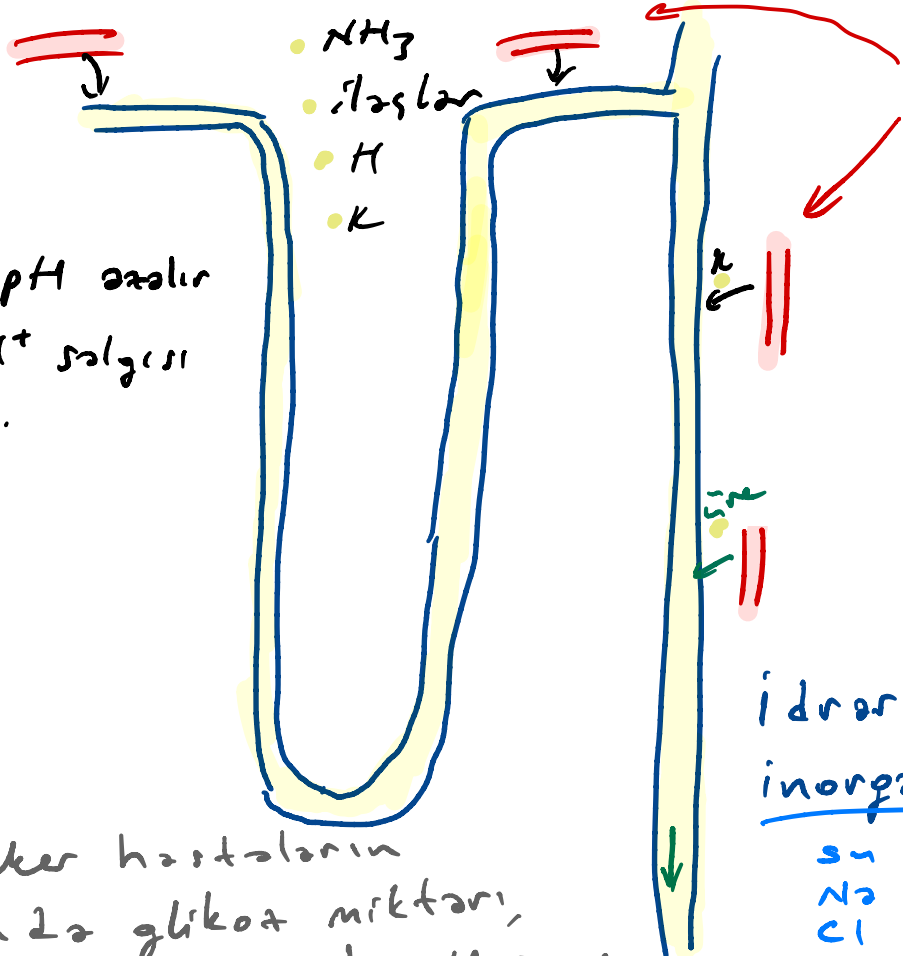 NH3
ilaçlar
H
K
pH azalır
+ salgısı
K
üre
idrar
inorga
su
Na
Cl
ker hastaların
da glikoz miktarı,